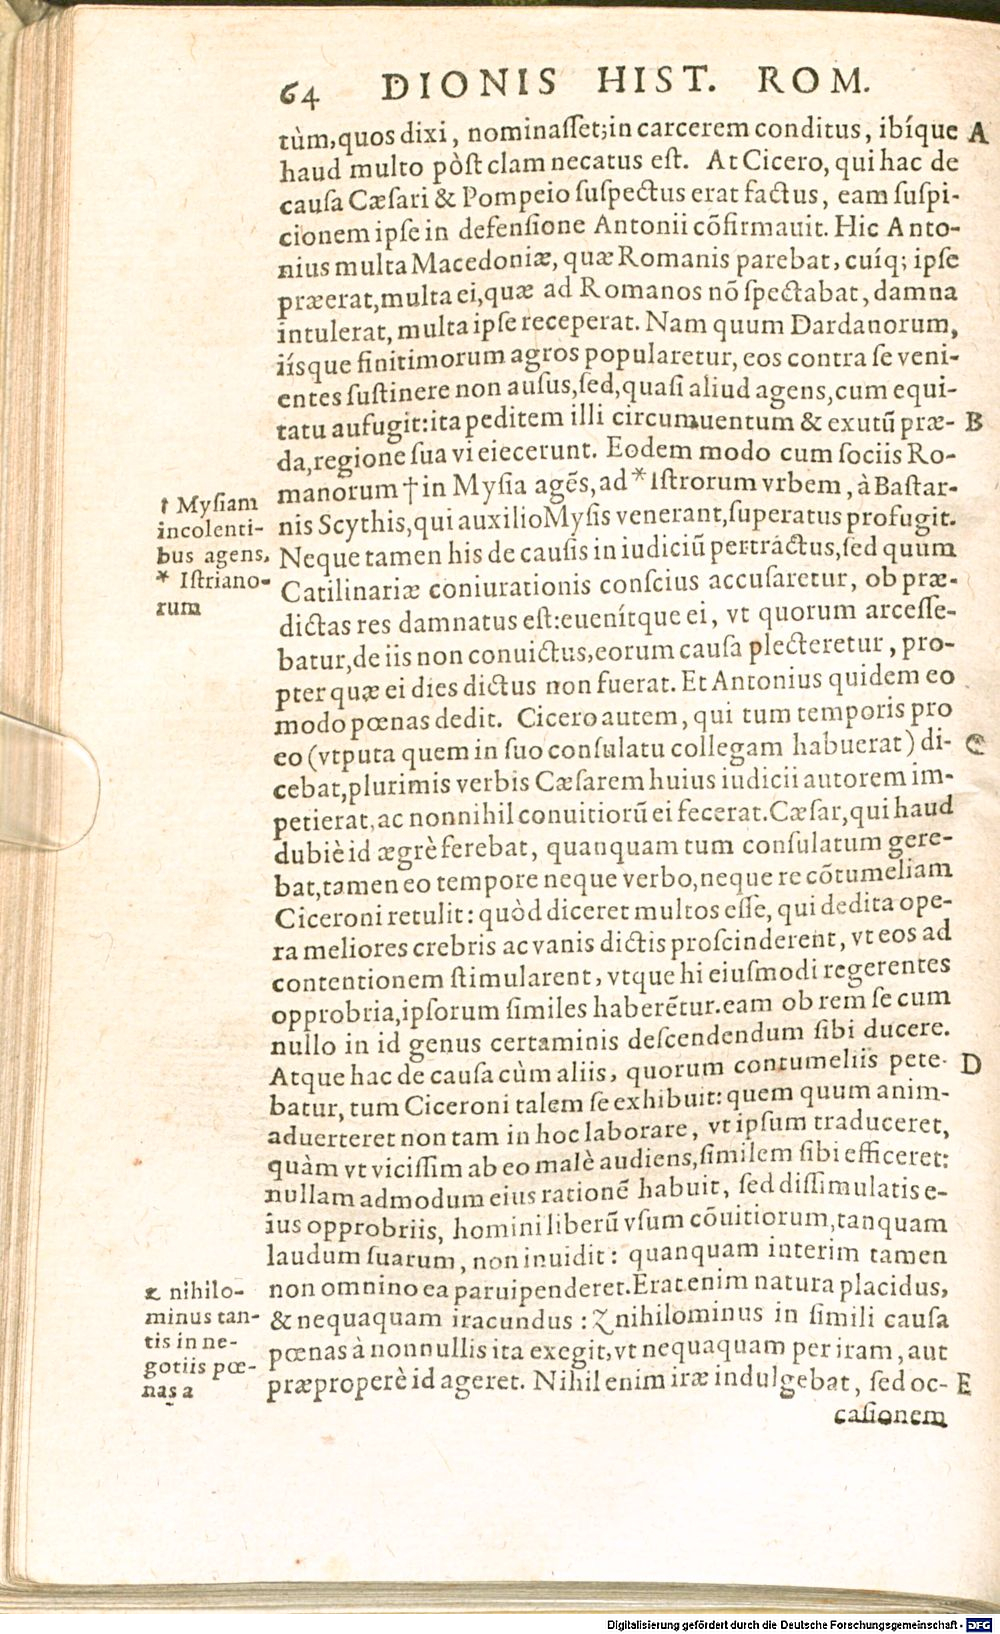 64 DIONIS HIST. ROM.
tùm,quos dixi, nominaſſet;in carcerem conditus, ibíque A
haud multo pòſt clam necatus eſt. At Cicero, qui hac de
cauſa Cæſari & Pompeio ſuſpectus erat factus, eam ſuſpi-
cionem ipſe in defenſione Antonii cõfirmauit. Hic Anto-
nius multa Macedoniæ, quæ Romanis parebat, cuíq; ipſe
præerat,multa ei,quæ ad Romanos nõ ſpectabat, damna
intulerat, multa ipſe receperat. Nam quum Dardanorum,
iíſque finitimorum agros popularetur, eos contra ſe veni-
entes ſuſtinere non auſus,ſed,quaſi aliud agens,cum equi-
tatu aufugit:ita peditem illi circumuentum & exutũ præ- B
da,regione ſua vi eiecerunt. Eodem modo cum ſociis Ro-
manorum †in Myſia agẽs,ad *Iſtrorum vrbem, à Baſtar-
nis Scythis,qui auxilio Myſis venerant,ſuperatus profugit.
Neque tamen his de cauſis in iudiciũ pertractus,ſed quum
Catilinariæ coniurationis conſcius accuſaretur, ob præ-
dictas res damnatus eſt:euenítque ei, vt quorum arceſſe-
batur,de iis non conuictus,eorum cauſa plecteretur, pro-
pter quæ ei dies dictus non fuerat. Et Antonius quidem eo
modo pœnas dedit. Cicero autem, qui tum temporis pro
eo (vtputa quem in ſuo conſulatu collegam habuerat) di- C
cebat,plurimis verbis Cæſarem huius iudicii autorem im-
petierat,ac nonnihil conuitiorũ ei fecerat.Cæſar,qui haud
dubiè id ægrè ferebat, quanquam tum conſulatum gere-
bat,tamen eo tempore neque verbo,neque re cõtumeliam
Ciceroni retulit: quòd diceret multos eſſe, qui dedita ope-
ra meliores crebris ac vanis dictis proſcinderent, vt eos ad
contentionem ſtimularent, vtque hi eiuſmodi regerentes
opprobria,ipſorum ſimiles haberẽtur.eam ob rem ſe cum
nullo in id genus certaminis deſcendendum ſibi ducere.
Atque hac de cauſa cùm aliis, quorum contumeliis pete- D
batur, tum Ciceroni talem ſe exhibuit: quem quum anim-
aduerteret non tam in hoc laborare, vt ipſum traduceret,
quàm vt viciſſim ab eo malè audiens,ſimilem ſibi efficeret:
nullam admodum eius rationẽ habuit, ſed diſſimulatis e-
ius opprobriis, homini liberũ vſum cõuitiorum,tanquam
laudum ſuarum, non inuidit: quanquam interim tamen
non omnino ea paruipenderet.Erat enim natura placidus,
& nequaquam iracundus : ⁊ nihilominus in ſimili cauſa
pœnas à nonnullis ita exegit,vt nequaquam per iram, aut
præproperè id ageret. Nihil enim iræ indulgebat, ſed oc- E
caſionem
† Myſiam
incolenti-
bus agens,
* Iſtriano-
rum
⁊ nihilo-
minus tan-
tis in ne-
gotiis pœ-
nas a
Digitalisierung gefördert durch die Deutsche Forschungsgemeinschaft - DFG